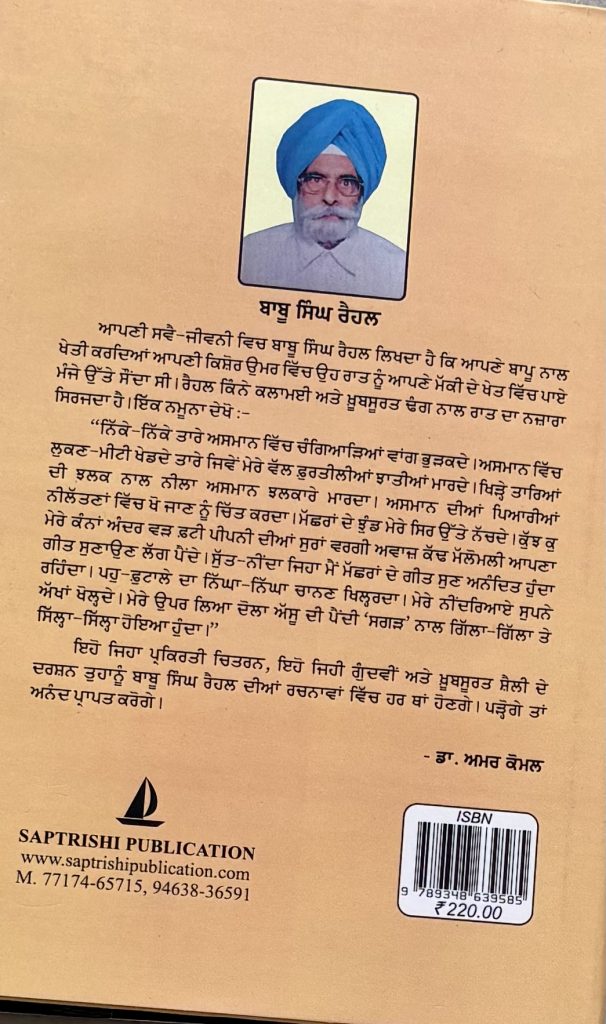 ਬਾਬੂ ਸਿੰਘ ਰੈਹਲ
ਆਪਣੀ ਸਵੈ-ਜੀਵਨੀ ਵਿਚ ਬਾਬੂ ਸਿੰਘ ਰੈਹਲ ਲਿਖਦਾ ਹੈ ਕਿ ਆਪਣੇ ਬਾਪੂ ਨਾਲ
ਖੇਤੀ ਕਰਦਿਆਂ ਆਪਣੀ ਕਿਸ਼ੋਰ ਉਮਰ ਵਿੱਚ ਉਹ ਰਾਤ ਨੂੰ ਆਪਣੇ ਮੱਕੀ ਦੇ ਖੇਤ ਵਿੱਚ ਪਾਏ
ਮੰਜੇ ਉੱਤੇ ਸੌਂਦਾ ਸੀ। ਰੈਹਲ ਕਿੰਨੇ ਕਲਾਮਈ ਅਤੇ ਖ਼ੂਬਸੂਰਤ ਢੰਗ ਨਾਲ ਰਾਤ ਦਾ ਨਜ਼ਾਰਾ
ਸਿਰਜਦਾ ਹੈ। ਇੱਕ ਨਮੂਨਾ ਦੇਖੋ :-
“ਨਿੱਕੇ-ਨਿੱਕੇ ਤਾਰੇ ਅਸਮਾਨ ਵਿੱਚ ਚੰਗਿਆੜਿਆਂ ਵਾਂਗ ਭੁੜਕਦੇ। ਅਸਮਾਨ ਵਿੱਚ
ਲੁਕਣ-ਮੀਟੀ ਖੇਡਦੇ ਤਾਰੇ ਜਿਵੇਂ ਮੇਰੇ ਵੱਲ ਫ਼ੁਰਤੀਲੀਆਂ ਝਾਤੀਆਂ ਮਾਰਦੇ। ਖਿੜ੍ਹੇ ਤਾਰਿਆ
ਦੀ ਝਲਕ ਨਾਲ ਨੀਲਾ ਅਸਮਾਨ ਝਲਕਾਰੇ ਮਾਰਦਾ। ਅਸਮਾਨ ਦੀਆਂ ਪਿਆਰੀਆਂ
ਨੀਲੱਤਣਾਂ ਵਿੱਚ ਖੋ ਜਾਣ ਨੂੰ ਚਿੱਤ ਕਰਦਾ। ਮੱਛਰਾਂ ਦੇ ਝੁੰਡ ਮੇਰੇ ਸਿਰ ਉੱਤੇ ਨੱਚਦੇ। ਕੁੱਝ ਕੁ
ਮੇਰੇ ਕੰਨਾਂ ਅੰਦਰ ਵੜ ਫ਼ਟੀ ਪੀਪਨੀ ਦੀਆਂ ਸੁਰਾਂ ਵਰਗੀ ਅਵਾਜ਼ ਕੱਢ ਮੱਲੋਮਲੀ ਆਪਣਾ
ਗੀਤ ਸੁਣਾਉਣ ਲੱਗ ਪੈਂਦੇ। ਸੁੱਤ-ਨੀਂਦਾ ਜਿਹਾ ਮੈਂ ਮੱਛਰਾਂ ਦੇ ਗੀਤ ਸੁਣ ਅਨੰਦਿਤ ਹੁੰਦਾ
ਰਹਿੰਦਾ। ਪਹੁ-ਫ਼ੁਟਾਲੇ ਦਾ ਨਿੱਘਾ-ਨਿੱਘਾ ਚਾਨਣ ਖਿਲ੍ਹਰਦਾ। ਮੇਰੇ ਨੀਂਦਰਿਆਏ ਸੁਪਨੇ
ਅੱਖਾਂ ਖੋਲ੍ਹਦੇ। ਮੇਰੇ ਉਪਰ ਲਿਆ ਦੋਲਾ ਅੱਸੂ ਦੀ ਪੈਂਦੀ ‘ਸਗੜ’ ਨਾਲ ਗਿੱਲਾ-ਗਿੱਲਾ ਤੇ
ਸਿੱਲ੍ਹਾ-ਸਿੱਲ੍ਹਾ ਹੋਇਆ ਹੁੰਦਾ।”
ਇਹੋ ਜਿਹਾ ਪ੍ਰਕਿਰਤੀ ਚਿਤਰਨ, ਇਹੋ ਜਿਹੀ ਗੁੰਦਵੀਂ ਅਤੇ ਖ਼ੂਬਸੂਰਤ ਸ਼ੈਲੀ ਦੇ
ਦਰਸ਼ਨ ਤੁਹਾਨੂੰ ਬਾਬੂ ਸਿੰਘ ਰੈਹਲ ਦੀਆਂ ਰਚਨਾਵਾਂ ਵਿੱਚ ਹਰ ਥਾਂ ਹੋਣਗੇ। ਪੜ੍ਹੋਗੇ ਤਾਂ
ਅਨੰਦ ਪ੍ਰਾਪਤ ਕਰੋਗੇ।
- ਡਾ. ਅਮਰ ਕੋਮਲ
SAPTRISHI PUBLICATION
www.saptrishipublication.com
M. 77174-65715, 94638-36591
ISBN
9 789348 639585
₹220.00